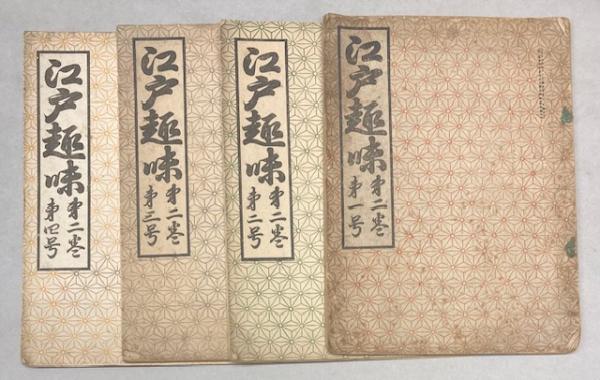 江戸趣味
第二巻
第一号
江戸趣味
第二巻
第二号
江戸趣味
第二巻
第三号
江戸趣味
第二巻
第四号